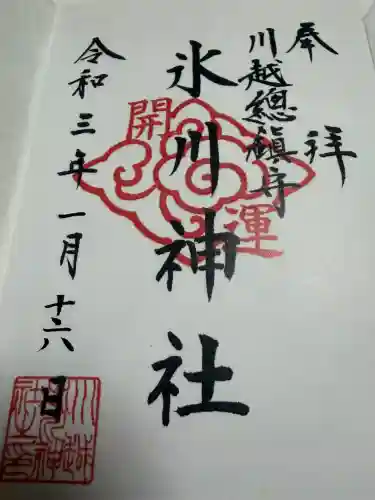 奉拝
川越總鎮守
氷川神社
開運
令和三年一月十六日
川越氷川神社之印